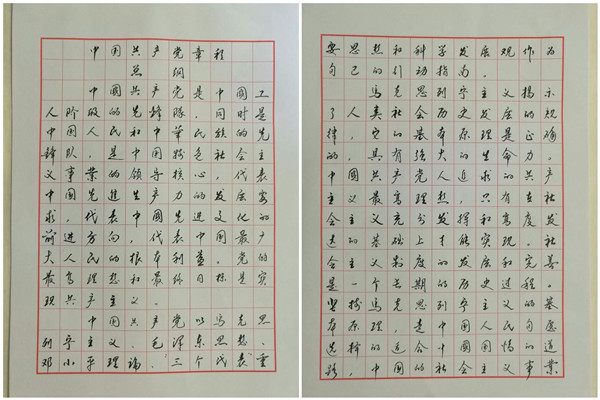 中国共产党章程
总纲
中國共产党是中國工
人阶级的先锋隊，同时是
中国人民和中華民族的先
鋒队，是中国特色社会主
义事業的领导核心，代表
中国先進生产力的发展要
求，代表中国先进文化的
前进方向，代表中国最广
大人民的根本利益。党的
最高理想和最终目标是实
现共产主义。
中国共产党以馬克思
列宁主义、毛泽东思想、
邓小平理論、三个代表重
要思想和科学发展观作为
自己的行动指南。
馬克思列宁主义揭示
了人类社会历史发展的规
律，它的基本原理是正确
的，具有强大的生命力。
中國共产党人追求的共产
主义最高理想，只有在社
会主义充分发挥和高度发
达的基础上才能实现。社
会主义制度的发展和完善
是一个长期的历史过程。
坚持馬克思列宁主义的基
本原理，走中国人民自愿
选择的适合中國国情的道
路，中国的社会主义事業